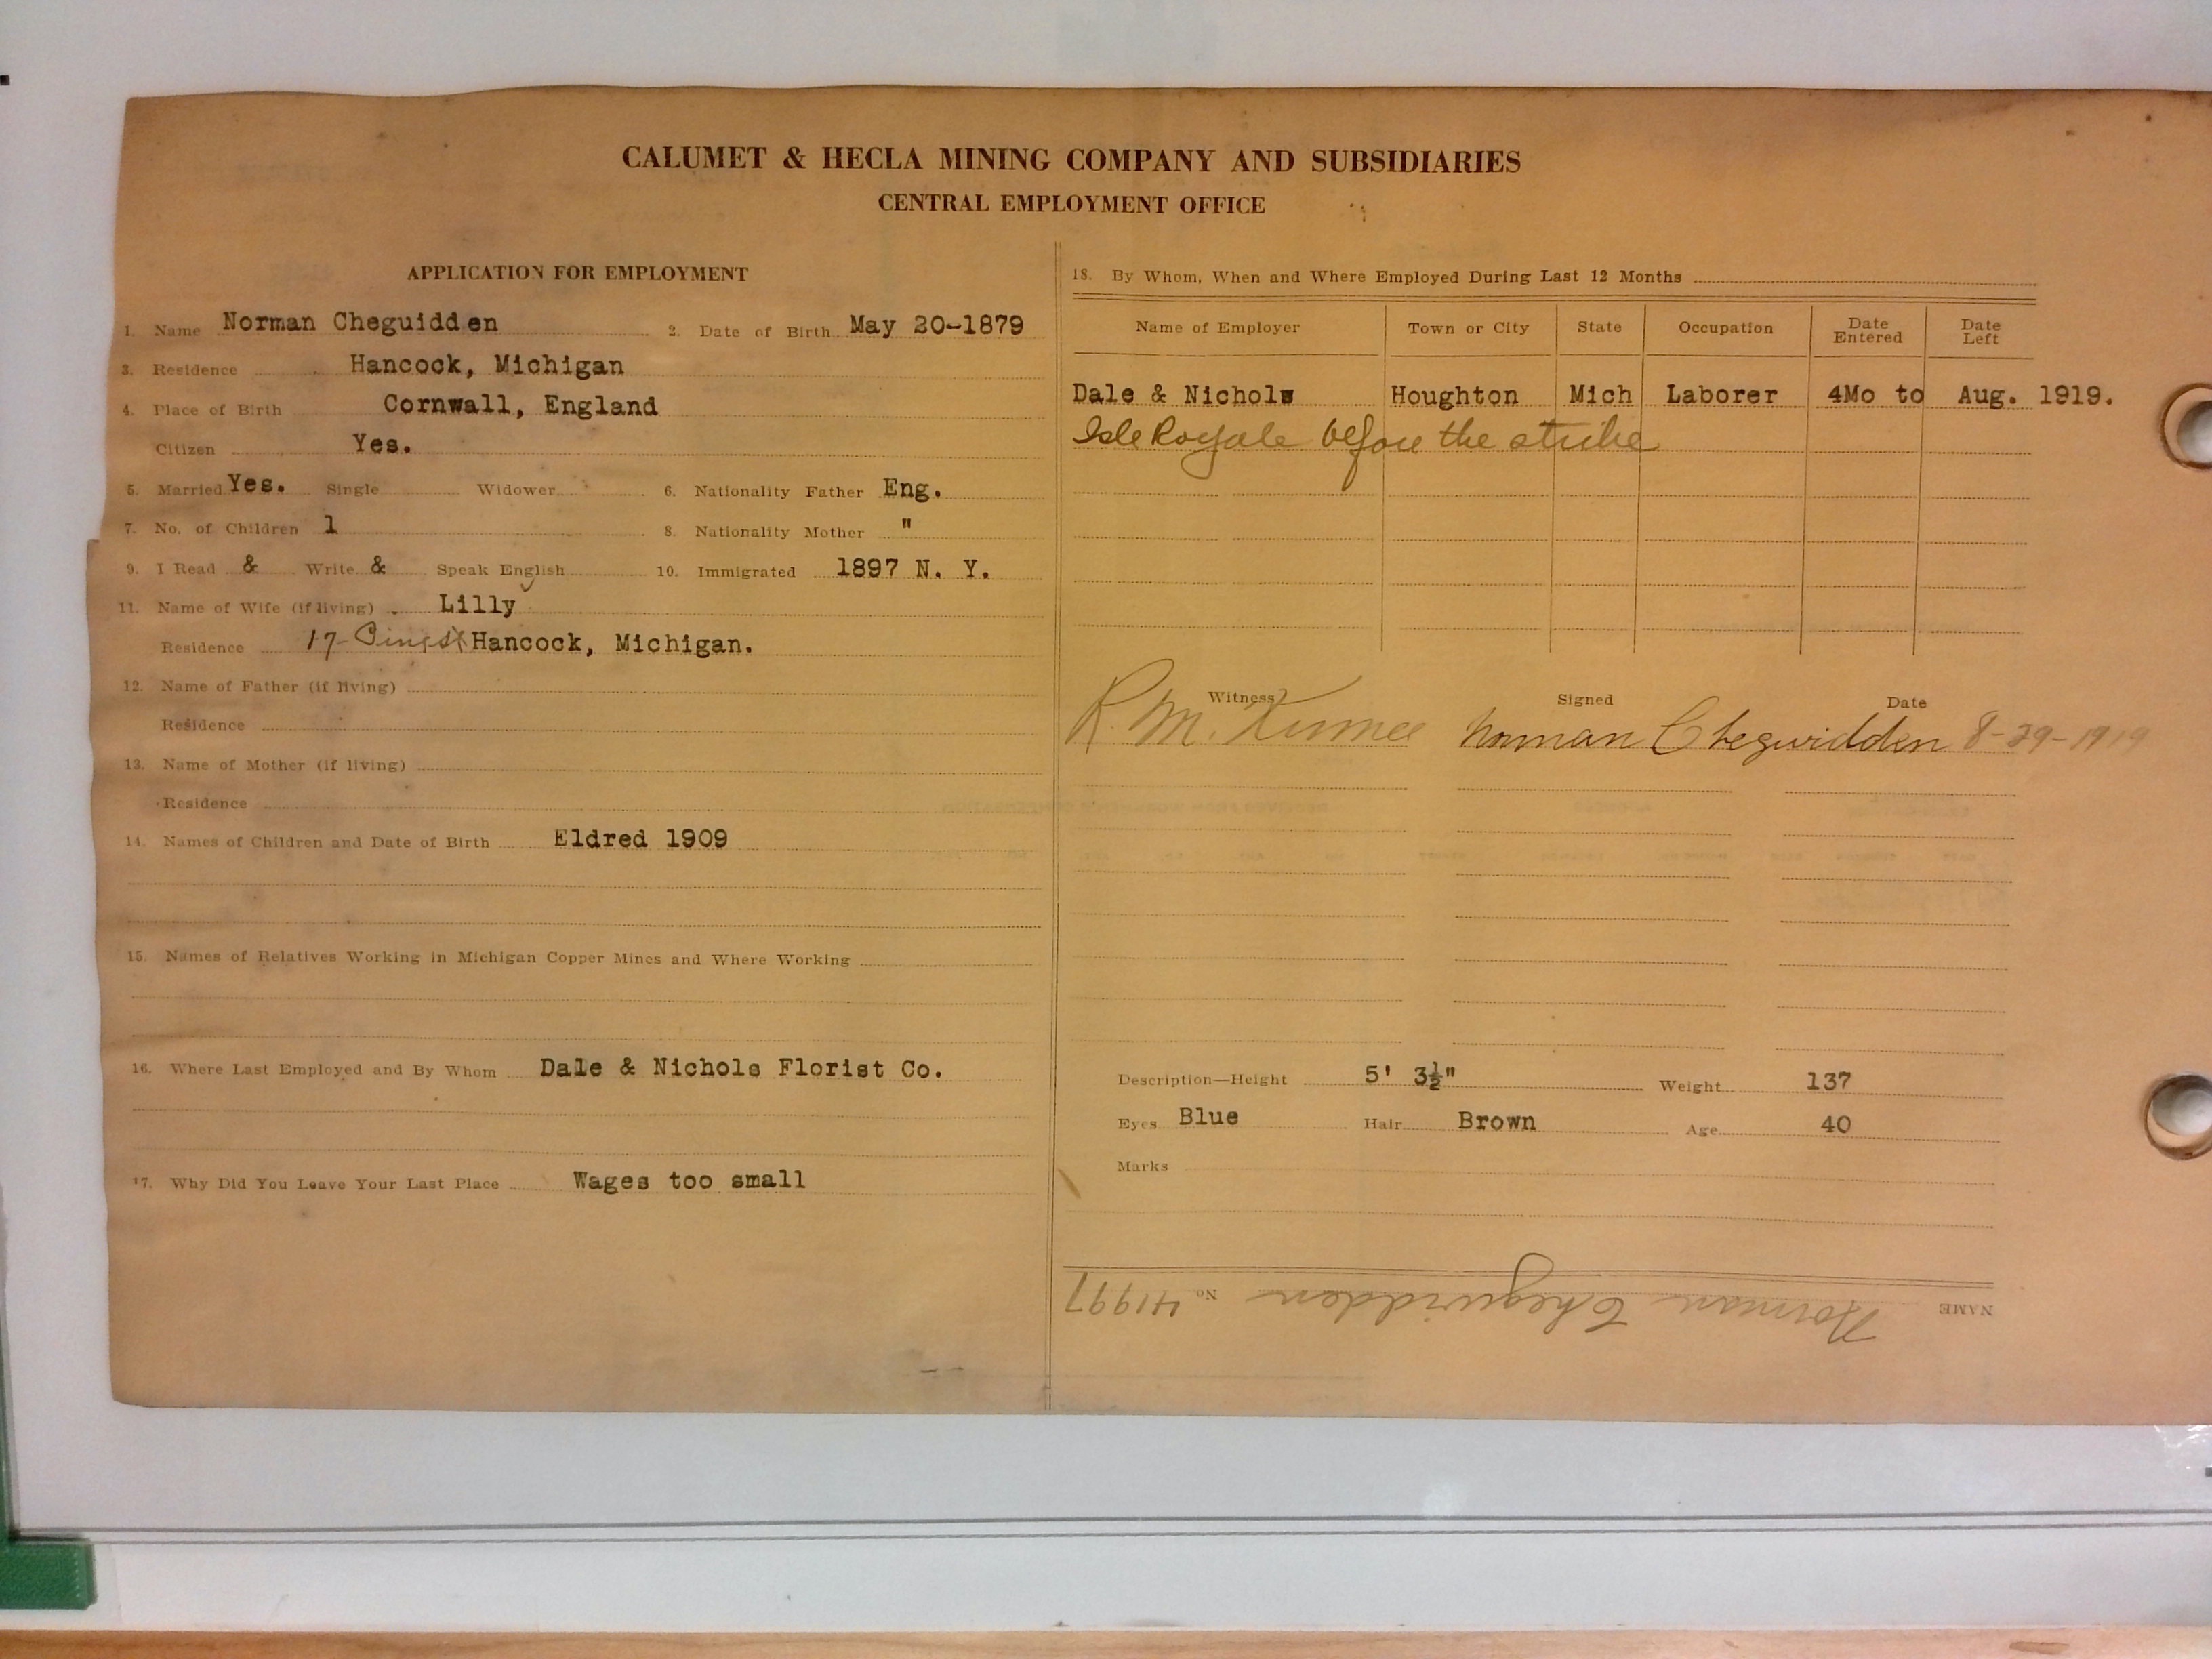 CALUMET & HECLA MINING COMPANY AND SUBSIDIARIES
CENTRAL EMPLOYMENT OFFICE
APPLICATION FOR EMPLOYMENT
1. Name Norman Cheguidden 2. Date of Birth May 20-1879
3. Residence Hancock, Michigan
4. Place of Birth Cornwall, England
Citizen Yes.
5. Married Yes. Single Widower 6. Nationality Father Eng.
7. No. of Children 1 8. Nationality Mother "
9. I Read & Write & Speak English 10. Immigrated 1897 N. Y.
11. Name of Wife (if living) Lilly
Residence 17 Hancock, Michigan.
12. Name of Father (if living)
Residence
13. Name of Mother (if living)
Residence
14. Names of Children and Date of Birth Eldred 1909
15. Names of Relatives Working in Michigan Copper Mines and Where Working
16. Where Last Employed and By Whom Dale & Nichols Florist Co.
17. Why Did You Leave Your Last Place Wages too small
18. By Whom, When and Where Employed During Last 12 Months
Name of Employer Town or City State Occupation Date Entered Date Left
Dale & Nichols Houghton Mich Laborer 4Mo to Aug. 1919.
Isle Royale before the strike
Witness Signed Date
R. M. Norman Chegwidden 8-29-1919
Description—Height 5' 3½" Weight 137
Eyes Blue Hair Brown Age 40
Marks
NAME Norman Chegwidden No 41997